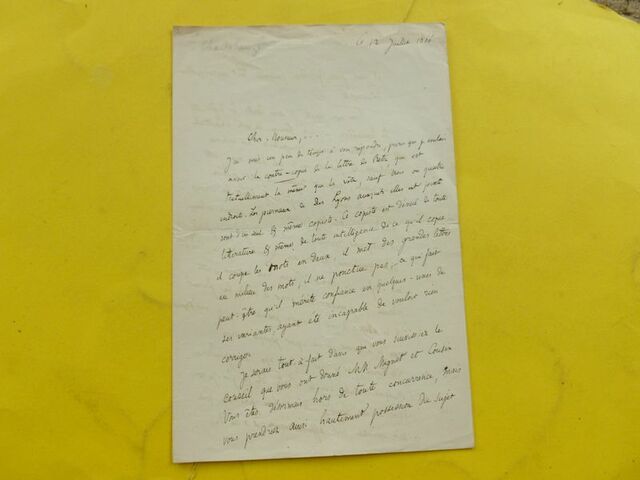 12 Juillet
Cher Monsieur,
J'ai mis un peu de temps à vous répondre, parce que je voulais
avoir la contre-copie de la lettre de Retz qui est
textuellement la même que la vôtre, sauf trois ou quatre
endroits. Les journaux de des Lyons auxquels elle est jointe
sont d'un seul & même copiste. Ce copiste est dénué de toute
littérature & même de toute intelligence de ce qu'il copie
il coupe les mots en deux, il met des grandes lettres
au milieu des mots, il ne ponctue pas, ce qui fait
peut-être qu'il mérite confiance en quelques-unes de
ses variantes, ayant été incapable de vouloir rien
corriger.
Je serais tout-à-fait d'avis que vous suivissiez le
conseil que vous ont donné MM. Mignet et Cousin
Vous êtes désormais hors de toute concurrence, mais
vous prendrez ainsi hautement possession du sujet